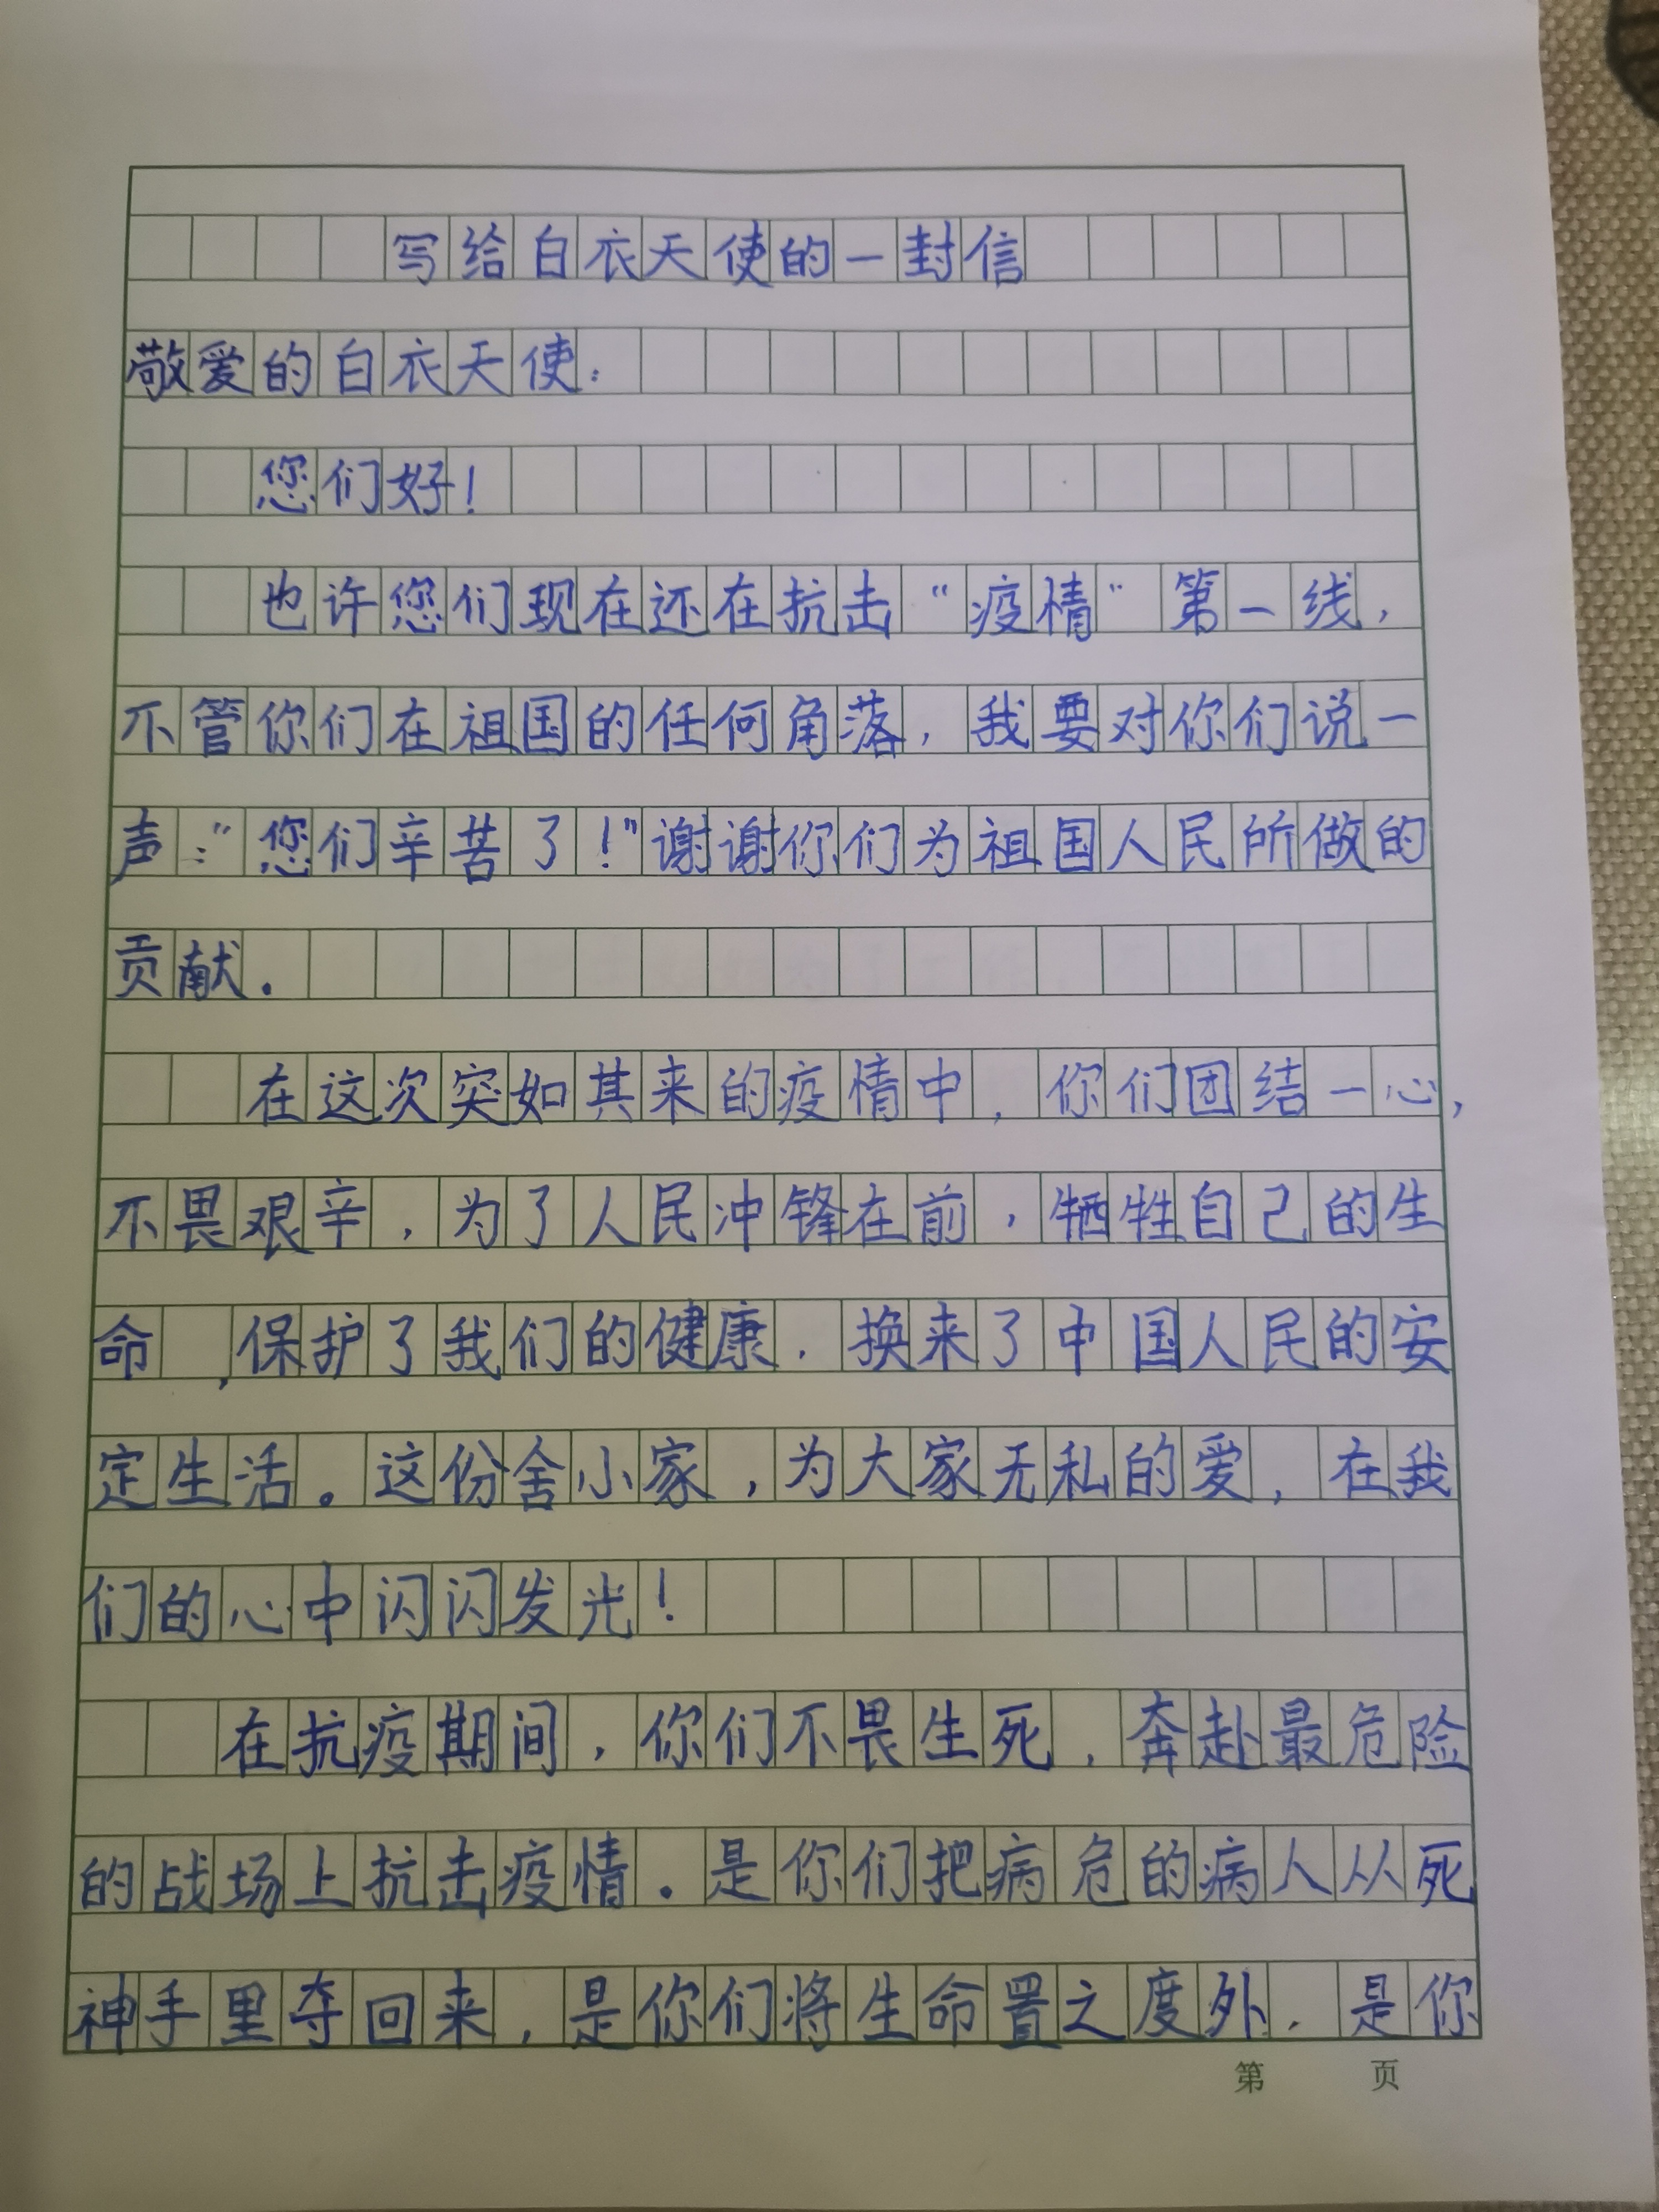 写给白衣天使的一封信
敬爱的白衣天使：
您们好！
也许您们现在还在抗击“疫情”第一线，
不管你们在祖国的任何角落，我要对你们说一
声：“您们辛苦了！”谢谢你们为祖国人民所做的
贡献。
在这次突如其来的疫情中，你们团结一心，
不畏艰辛，为了人民冲锋在前，牺牲自己的生
命，保护了我们的健康，换来了中国人民的安
定生活。这份舍小家，为大家无私的爱，在我
们的心中闪闪发光！
在抗疫期间，你们不畏生死，奔赴最危险
的战场上抗击疫情。是你们把病危的病人从死
神手里夺回来，是你们将生命置之度外，是你
第 页